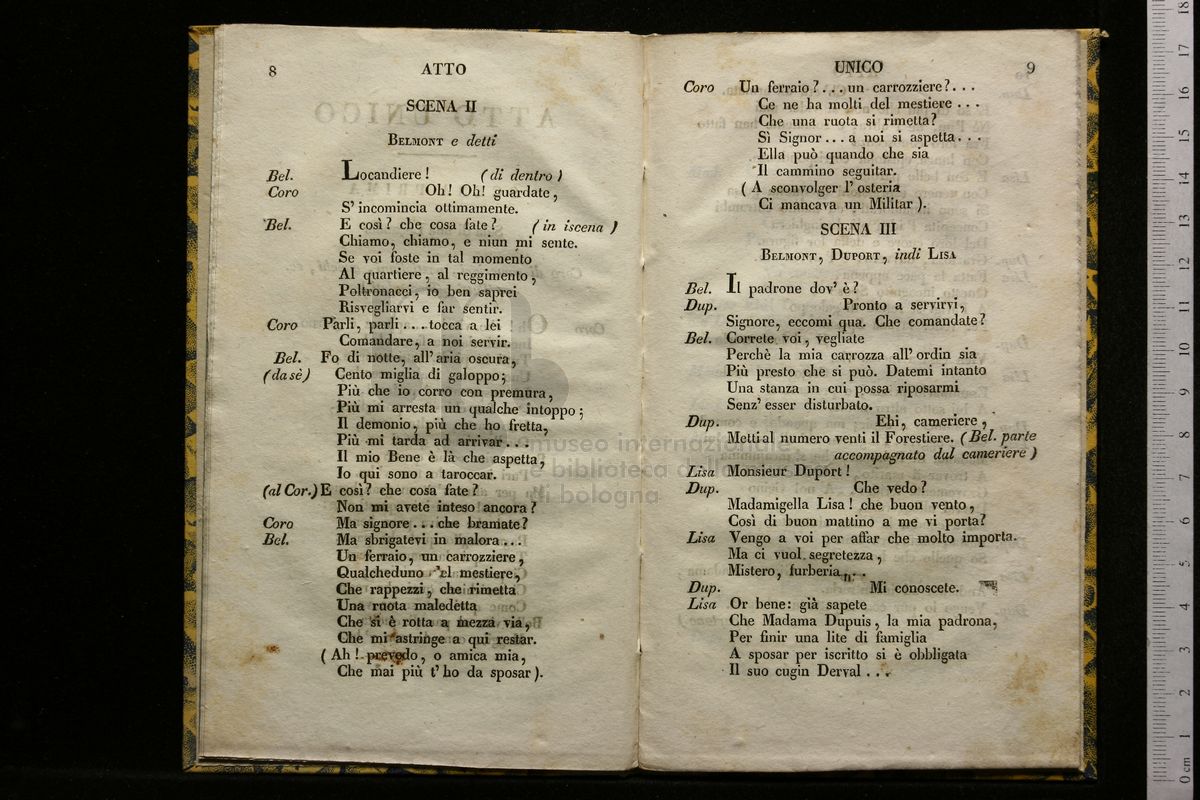 8 ATTO
SCENA II
BELMONT e detti
Bel. Locandiere! (di dentro)
Coro Oh! Oh! guardate,
S' incomincia ottimamente.
Bel. E così? che cosa fate? (in iscena)
Chiamo, chiamo, e niun mi sente.
Se voi foste in tal momento
Al quartiere, al reggimento,
Poltronacci, io ben saprei
Risvegliarvi e far sentir.
Coro Parli, parli...tocca a lei
Comandare, a noi servir.
Bel. Fo di notte, all' aria oscura,
(da sè) Cento miglia di galoppo;
Più che io corro con premura,
Più mi arresta un qualche intoppo;
Il demonio, più che ho fretta,
Più mi tarda ad arrivar...
Il mio Bene è là che aspetta,
Io qui sono a taroccar.
(al Cor.) E così? che cosa fate?
Non mi avete inteso ancora?
Coro Ma signore...che bramate?
Bel. Ma sbrigatevi in malora...
Un ferraio, un carrozziere,
Qualcheduno el mestiere,
Che rappezzi, che rimetta
Una ruota maledetta
Che si è rotta a mezza via,
Che mi astringe a qui restar.
(Ah! prevedo, o amica mia,
Che mai più t' ho da sposar).
UNICO 9
Coro Un ferraio?...un carrozziere?...
Ce ne ha molti del mestiere...
Che una ruota si rimetta?
Sì Signor...a noi si aspetta...
Ella può quando che sia
Il cammino seguitar.
(A sconvolger l' osteria
Ci mancava un Militar).
SCENA III
BELMONT, DUPORT, indi LISA
Bel. Il padrone dov' è?
Dup. Pronto a servirvi,
Signore, eccomi qua. Che comandate?
Bel. Correte voi, vegliate
Perchè la mia carrozza all' ordin sia
Più presto che si può. Datemi intanto
Una stanza in cui possa riposarmi
Senz' esser disturbato.
Dup. Ehi, cameriere,
Metti al numero venti il Forestiere. (Bel. parte
accompagnato dal cameriere)
Lisa Monsieur Duport!
Dup. Che vedo?
Madamigella Lisa! che buon vento,
Così di buon mattino a me vi porta?
Lisa Vengo a voi per affar che molto importa.
Ma ci vuol segretezza,
Mistero, furberia...
Dup. Mi conoscete.
Lisa Or bene: già sapete
Che Madama Dupuis, la mia padrona,
Per finir una lite di famiglia
A sposar per iscritto si è obbligata
Il suo cugin Derval...
museo internazionale
biblioteca della
di bologna
0 cm 1 2 3 4 5 6 7 8 9 10 11 12 13 14 15 16 17 18